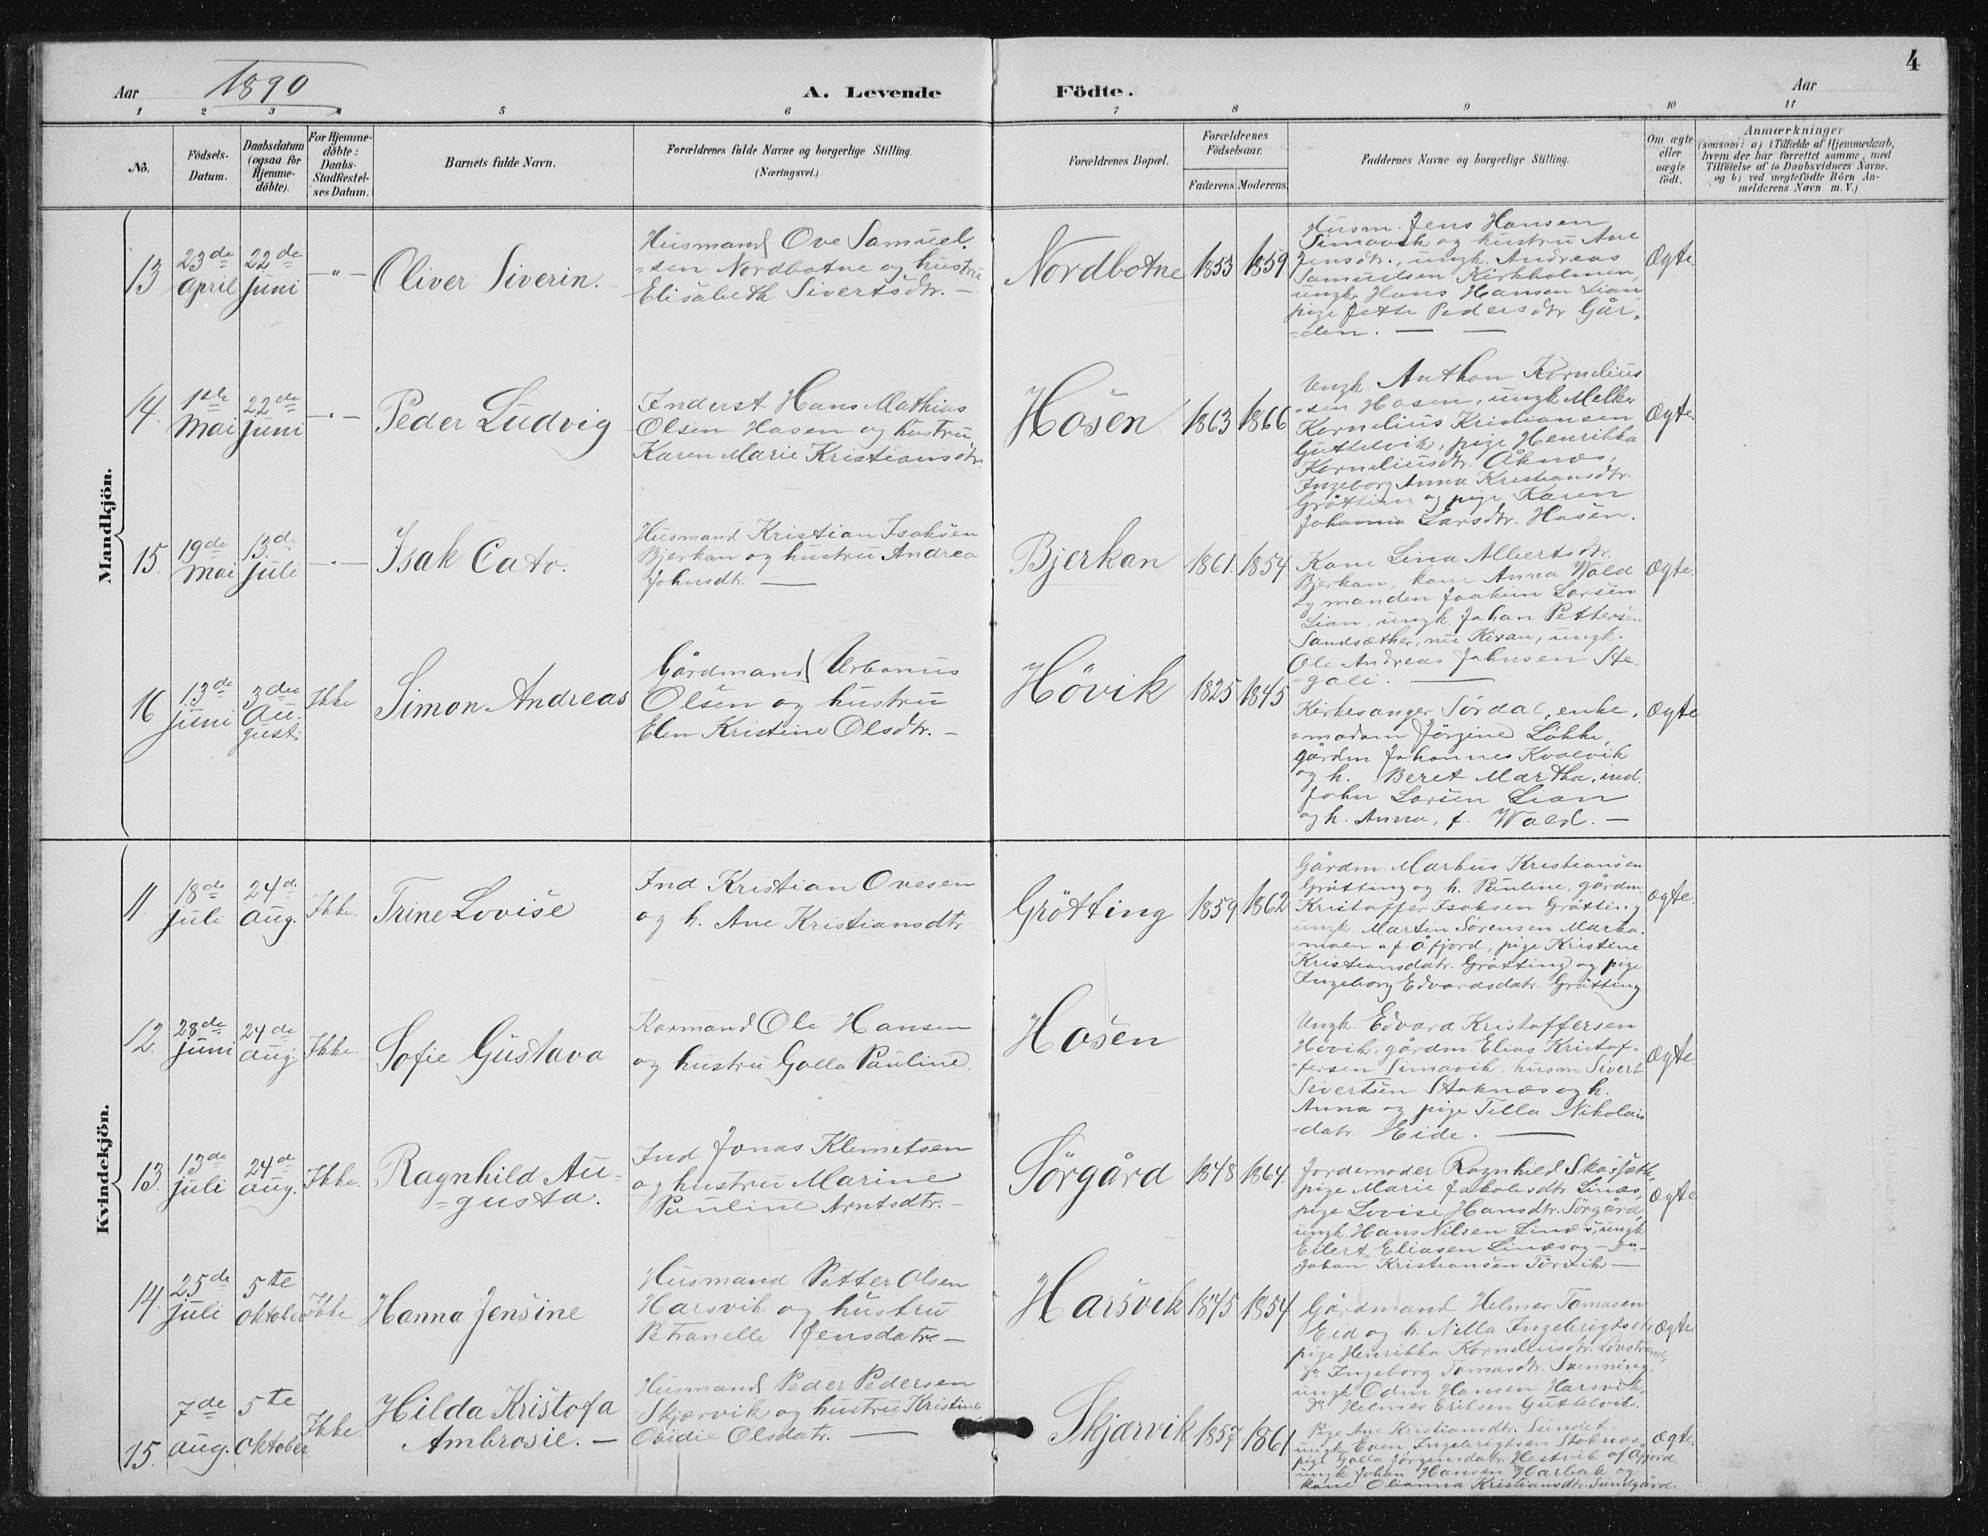 4
Aar 1890 A. Levende Födte. Aar
1 2 3 4 5 6 7 8 9 10 11
No.
Födsels-
Datum.
Daabsdatum
(ogsaa for
Hjemme-
döbte).
For Hjemme-
döbte:
Daabs-
Stadfæstel-
ses Datum.
Barnets fulde Navn.
Forældrenes fulde Navne og borgerlige Stilling.
(Næringsvei.)
Forældrenes Bopæl.
Forældrenes
Födselsaar.
Faderens. Moderens.
Faddernes Navne og borgerlige Stilling.
Om ægte
eller
uægte
födt.
Anmærkninger
(saasom: a) i Tilfælde af Hjemmedaab,
hvem der har forrettet samme, med
Tilföielse af to Daabsvidners Navne.
og b) ved uægtefödte Börn An-
melderens Navn m. V.)
Mandkjön.
13.
23de
April
22de
Juni
-"-
Oliver Siverin.
Husmand Ove Samuel-
-sen Nordbotne og hustru
Elisabeth Sivertsdtr. -
Nordbotne
1853
1859
Husm. Jens Hansen
Simavik og hustru Ane
Jensdtr., ungk. Andreas
Samuelsen Kirkholmen
ungk. Hans Hansen Lian,
pige Jette Pedersdtr Går-
-den. — —
Ægte
14.
1ste
Mai
22de
Juni
-"-
Peder Ludvig
Inderst Hans Mathias
Olsen Hosen og hustru
Karen Marie Kristiansdtr.
Hosen
1863
1866
Ungk. Anthon Kornelius
-sen Hosen, ungk Melker
Kornelius Kristiansen
Guttelvik, pige Henrikka
Korneliusdtr. Åknes,
Ingeborg Anna Kristiansdtr.
Gröttin og pige Karen
Johanna Larsdtr. Hosen.
Ægte
15.
19de
Mai
13de
Juli
-"-
Isak Cato.
Husmand Kristian Isaksen
Bjerkan og hustru Andrea
Johnsdtr. —
Bjerkan
1861.
1854
Kone Lina Albertsdtr.
Bjerkan, kone Anna Wold
og manden Joakim Larsen
Lian, ungk. Johan Pettersen
Sandsæther, nu Kiran, ungk.
Ole Andreas Johnsen Ste-
-gali. —
Ægte.
16.
13de
Juni
3die
Au-
gust.
Ikke
Simon Andreas
Gårdmand Urbanus
Olsen og hustru
Elen Kristine Olsdtr. -
Hövik
1825
1845
Kirkesanger Sørdal, enke-
=madam Jörgine Løkke,
gårdm Johannes Kvalvik
og h. Beret Martha, ind.
John Larsen Lian
og h. Anna, f. Wold. —
Ægte
Kvindekjön.
11.
18de
Juli
24de
Aug.
Ikke.
Trine Lovise
Ind Kristian Ovesen
og h. Ane Kristiansdtr.
Grötting
1859
1862
Gårdm. Markus Kristiansen
Grötting og h. Pauline, gårdm
Kristoffer Isaksen Grötting
ungk. Martin Sörensen Marka-
-moen af Åfjord, pige Kristine
Kristiansdatr. Grötting og pige
Ingeborg Edvardsdatr. Grötting
Ægte.
12.
28de
Juni
24de
Aug.
Ikke.
Sofie Gustava
Kormand Ole Hansen
og hustru Golla Pauline.
Hosen
Ungk. Edvard Kristoffersen
Hövik, gårdm. Elias Kristof-
-fersen Simavik, husm Sivert
Sivertsen Stoknes og h.
Anna og pige Tella Nikolais
-datr. Eide. —
Ægte.
13.
13de
Juli
24de
Aug.
Ikke.
Ragnhild Au-
=gusta.
Ind Jonas Klemetsen
og hustru Marine
Pauline Arntsdtr. -
Sörgård
1848
1864.
Jordemoder Ragnhild
pige Marie Jakobsdtr. Linæs,
pige Lovise Hansdtr. Sörgård,
ungk. Hans Nilsen Linæs, ungk.
Eilert Eliasen Linæs og -Do-
Johan Kristiansen —
Ægte.
14.
25de
Juli
5te
Oktober
Ikke
Hanna Jensine
Husmand Petter Olsen
Harsvik og hustru
Petranelle Jensdatr. -
Harsvik
1845
1854
Gårdmand Helmer Tomasen
Eid og h. Nella Ingebrigtsdtr
pige Henrikka Korneliusdtr.
Do Ingeborg Tomasdtr. Svenning,
ungk Odin Hansen Harsvik,
Do Helmer Eriksen Guttelvik.
Ægte.
15.
7de
Aug.
5te
Oktober
Ikke
Hilda Kristofa
Ambrosie. —
Husmand Peder Pedersen
Skjærvik og hustru Kristine
Ovidie Olsdatr. —
Skjærvik
1857
1861
Pige Ane Kristiansdtr. Sundet,
ungk Even Ingebrigtsen Stoknes,
pige Golla Jörgensdatr. Hestvik af Åfjord.
ungk. Johan Hansen Harbak og
kone Olianna Kristiansdtr. Sundgård.
Ægte.